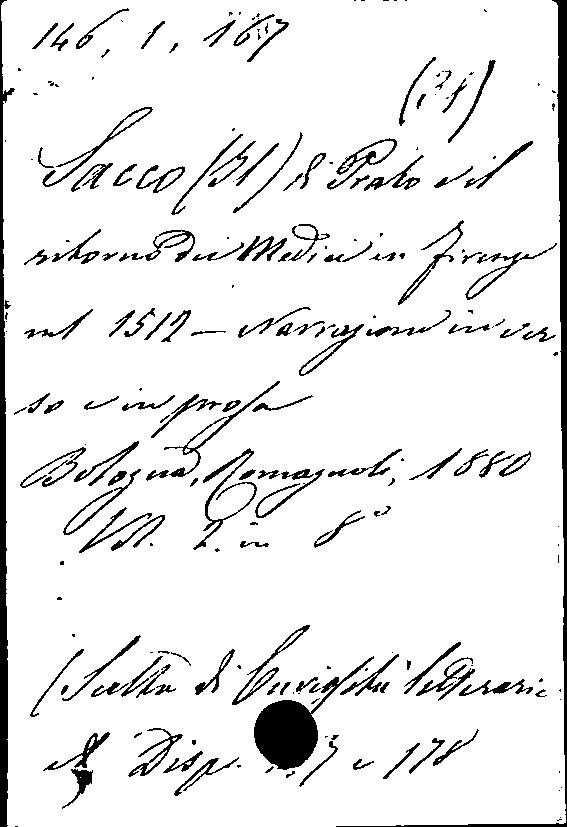 146, 1, 167
Sacco (Il) di Prato e il
ritorno dei Medici in Firenze
nel 1512 – Narrazione in ver-
so e in prosa
Bologna, Romagnoli, 1880
Vol. 2. in 8°
(Scelta di Curiosità letterarie
Disp. e 178